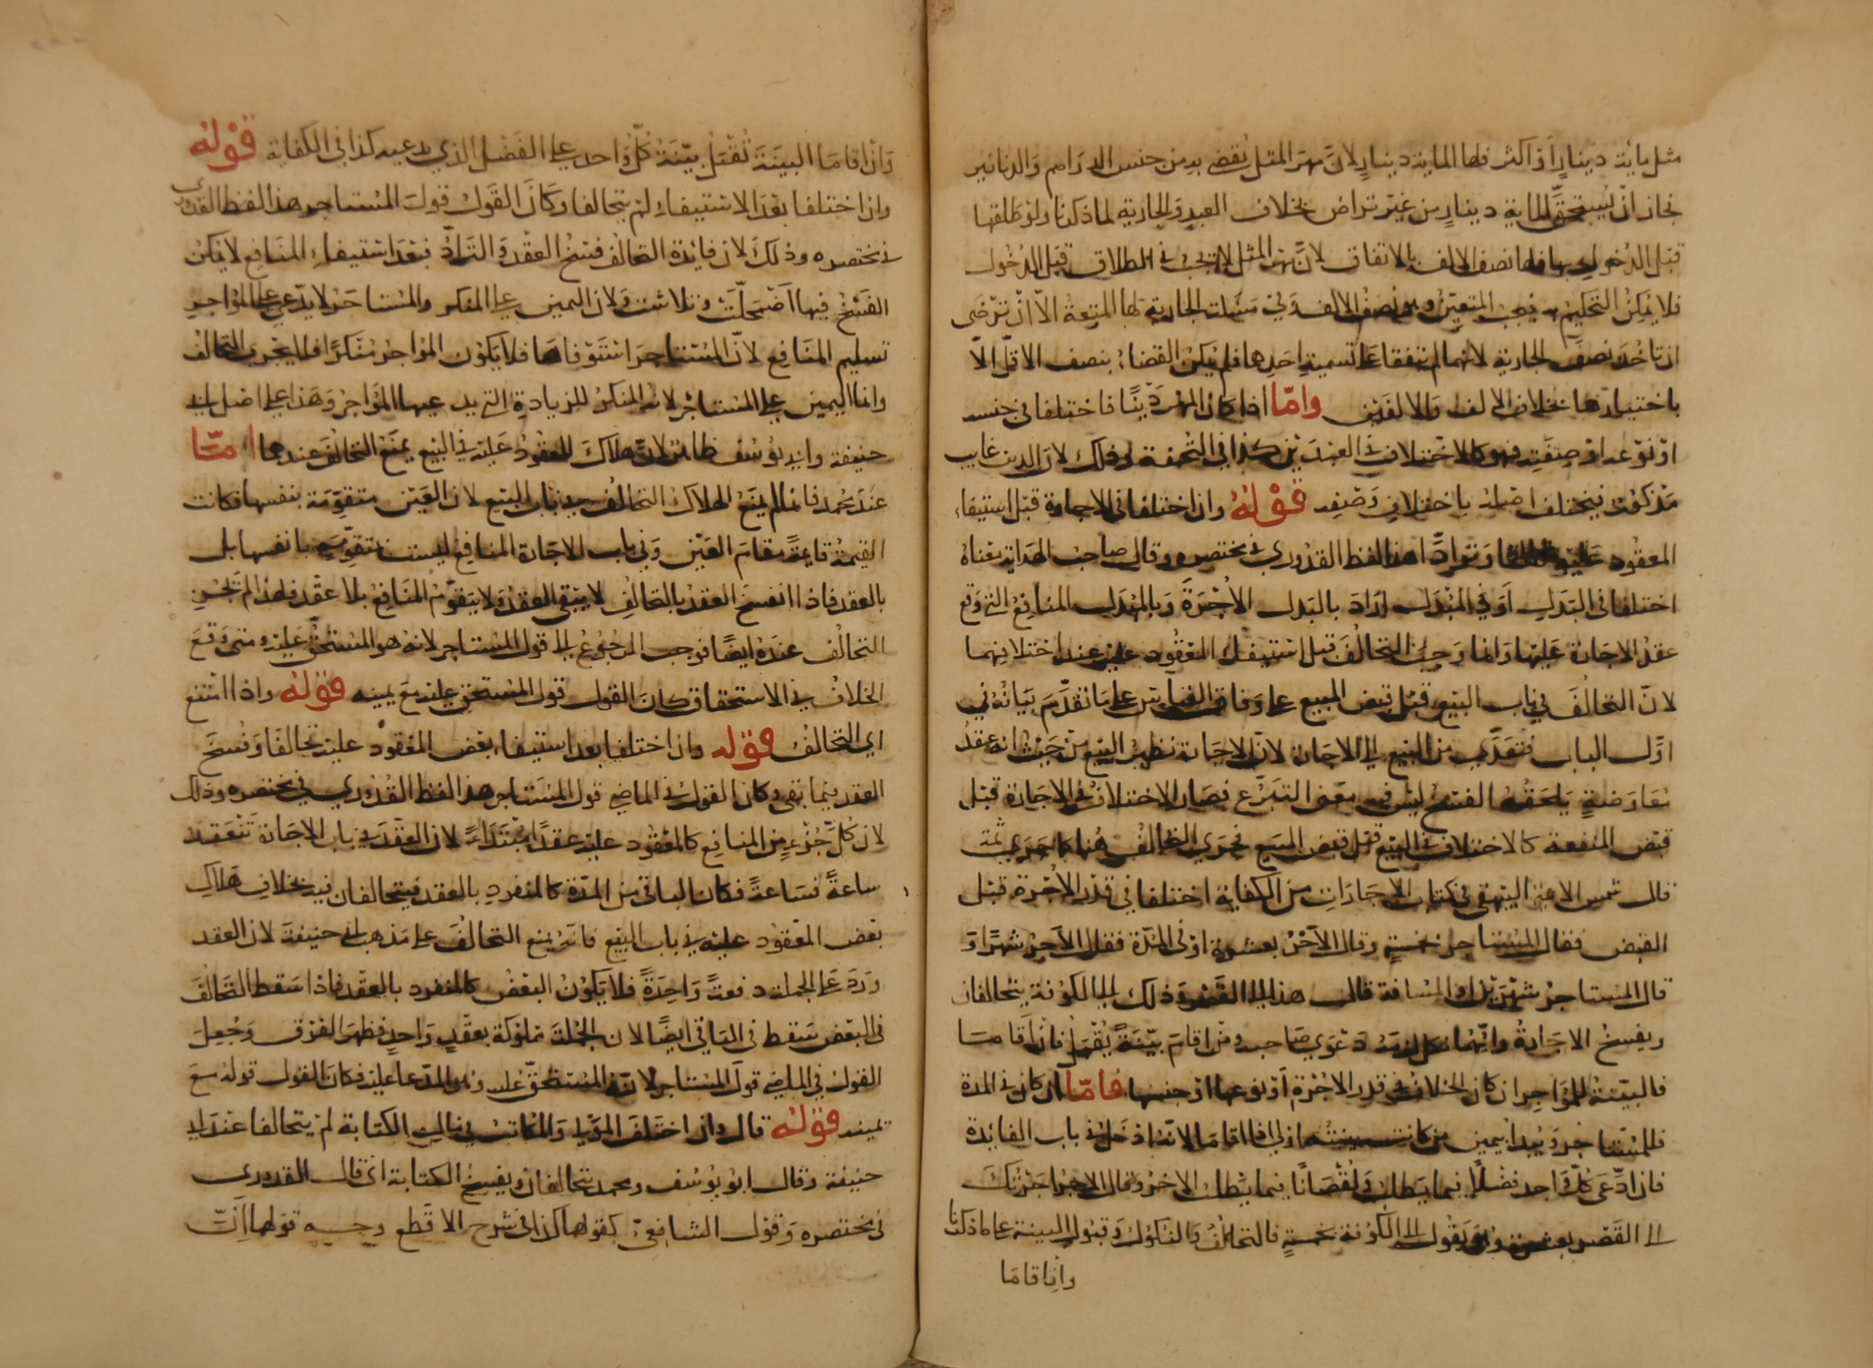 مثل ماية دينار او اكثر فلها الماية دينار لان مهر المثل يقضى به من جنس الدراهم والدنانير
فجاز ان يستحق الماية دينار من غير تراض بخلاف العبد والجارية لما ذكرنا ولو طلقها
قبل الدخول بها فلها نصف الالف بالاتفاق لان مهر المثل لا يجب في الطلاق قبل الدخول
فلا يمكن التحكيم فيجب المتعين وهو نصف الالف وفي مسئلة الجارية لها المتعة الا ان ترضى
ان تاخذ نصف الجارية لانهما لم يتفقا على تسمية احدها فلم يكن القضاء بنصف الاقل الا
باختيارها بخلاف الالف والالفين واما اذا كان المهر دينا فاختلفا في جنسه
او نوعه او صفته فهو كالاختلاف في العينين كذا في التحفة وذلك لان الدين غايب
مذكور فيختلف اصله باختلاف وصفه قوله وان اختلفا في الاجارة قبل استيفاء
المعقود عليه تحالفا وترادا هذا لفظ القدوري في مختصره وقال صاحب الهداية معناه
اختلفا في البدل او في المبدل اراد بالبدل الاجرة وبالمبدل المنافع التي وقع
عقد الاجارة عليها وانما وجب التحالف قبل استيفاء المعقود عليه عند اختلافهما
لان التحالف في باب البيع قبل قبض المبيع على وفاق القياس على ما تقدم بيانه في
اول الباب فتعدى من البيع الى الاجارة لان الاجارة نظير البيع من حيث انه عقد
معاوضة يلحقه الفسخ ليس فيه معنى التبرع فصار الاختلاف في الاجارة قبل
قبض المنفعة كالاختلاف في البيع قبل قبض المبيع فجرى التحالف هنا كما جرى ثمة
قال شمس الائمة البيهقي في كتاب الاجارات من الكفاية اختلفا في قدر الاجرة قبل
القبض فقال المستاجر خمسة وقال الآخر بعشرة او في المدة فقال الآجر شهرا و
قال المستاجر شهرين او المسافة قال هذا الى القصر وذلك الى الكوفة يتحالفان
ويفسخ الاجارة وايهما نكل لزمه دعوى صاحبه ومن اقام بينة يقبل فان اقاما
فالبينة للمؤاجر ان كان الخلاف في قدر الاجرة او نوعها او جنسها فاما ان كان في المدة
فللمستاجر ويبدا بيمين من كانت بينته اولى اذا اقاما لانه ادخل في باب الفايدة
فان ادعى كل واحد فضلا فيما يطلب ونقصانا فيما يطلب الاخر وقال الاخر اجرتك
الى القصر بعشرة وهو يقول الى الكوفة بخمسة فالتحالف والنكول وقبول البينة على ما ذكرنا
وان اقاما
وان اقاما البينة تقبل بينة كل واحد على الفضل الذي يدعيه كذا في الكفاية قوله
وان اختلفا بعد الاستيفاء لم يتحالفا وكان القول قول المستاجر هذا لفظ القدوري
في مختصره وذلك لان فايدة التحالف فسخ العقد والتراد فبعد استيفاء المنافع لا يمكن
الفسخ فيها اضمحلت وتلاشت ولان اليمين على المنكر والمستاجر لا يدعي على المؤاجر
تسليم المنافع لان المستاجر استوفاها فلا يكون المؤاجر منكرا فلا يجري التحالف
وانما اليمين على المستاجر لانه المنكر للزيادة التي يدعيها المؤاجر وهذا على اصل ابي
حنيفة وابي يوسف ظاهر لان هلاك المعقود عليه في البيع يمنع التحالف عندهما اما
عند محمد فانما لم يمنع الهلاك التحالف في باب البيع لان العين متقومة بنفسها فكانت
القيمة قايمة مقام العين وفي باب الاجارة المنافع ليست متقومة بانفسها بل
بالعقد فاذا انفسخ العقد بالتحالف لا يبقى العقد ولا يتقوم المنافع بلا عقد فلهذا لم يجز
التحالف عنده ايضا فوجب الرجوع الى قول المستاجر لانه هو المستحق عليه ومتى وقع
الخلاف في الاستحقاق كان القول قول المستحق عليه مع يمينه قوله واذا امتنع
اي التحالف قوله وان اختلفا بعد استيفاء بعض المعقود عليه تحالفا وفسخ
العقد فيما بقى وكان القول في الماضي قول المستاجر هذا لفظ القدوري في مختصره وذلك
لان كل جزء من المنافع كالمعقود عليه عقدا مبتداء لان العقد في باب الاجارة تنعقد
ساعة فساعة فكان الباقي من المدة كالمنفرد بالعقد فيتحالفان فيه بخلاف هلاك
بعض المعقود عليه في باب البيع فانه يمنع التحالف على مذهب ابي حنيفة لان العقد
ورد على الجملة دفعة واحدة فلا يكون البعض كالمنفرد بالعقد فاذا سقط التحالف
في البعض سقط في الباقي ايضا لان الجملة مملوكة بعقد واحد فظهر الفرق وجعل
القول في الماضي قول المستاجر لانه المستحق عليه وهو المدعا عليه فكان القول قوله مع
يمينه قوله قال وان اختلف المولى والمكاتب في مال الكتابة لم يتحالفا عند ابي
حنيفة وقال ابو يوسف ومحمد يتحالفان ويفسخ الكتابة اي قال القدوري
في مختصره وقول الشافعي كقولهما كذا في شرح الاقطع وجه قولهما ان